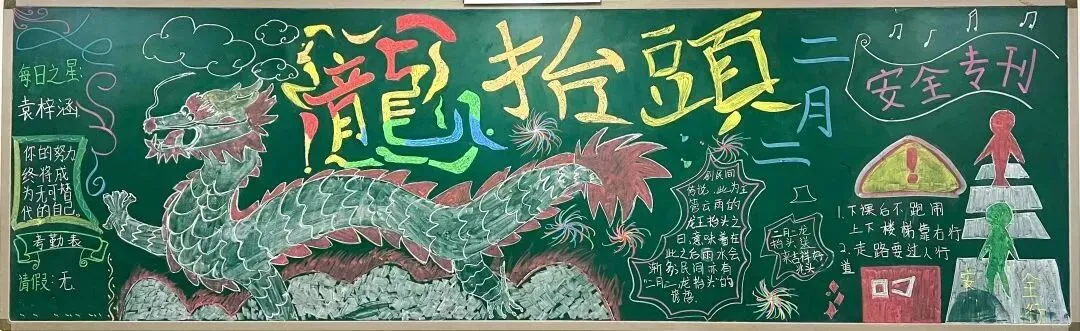 每日之星:
袁梓涵
你的努力
终将成
为无可替
代的自己。
考勤表
请假:无
龍抬頭
二月二
此为主
管云雨的
龙王抬头之
日,意味着在
此之后,雨水会
民间亦有
“二月二,龙抬头”的
二月二龙
抬头,送
来吉祥好
兆头
安全专刊
!
1.下课后不跑闹
上下楼梯靠右行
2.走路要过人行
道
安
全